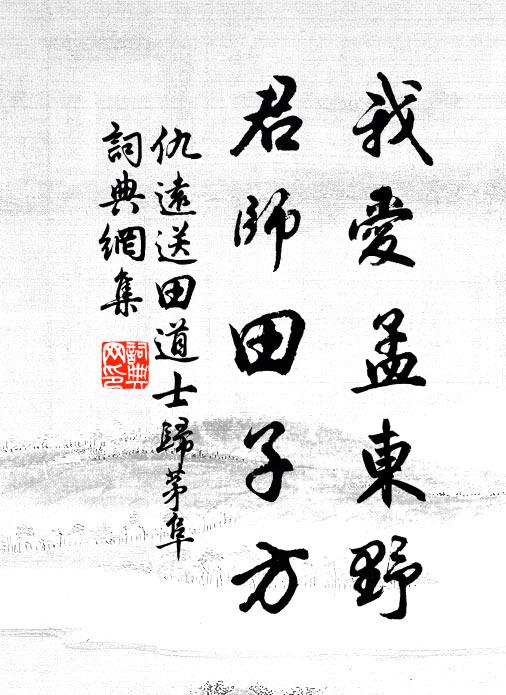 我愛孟東野
君師田子方
仇遠送田道士歸茅阜
詞典網集
詞典
网印